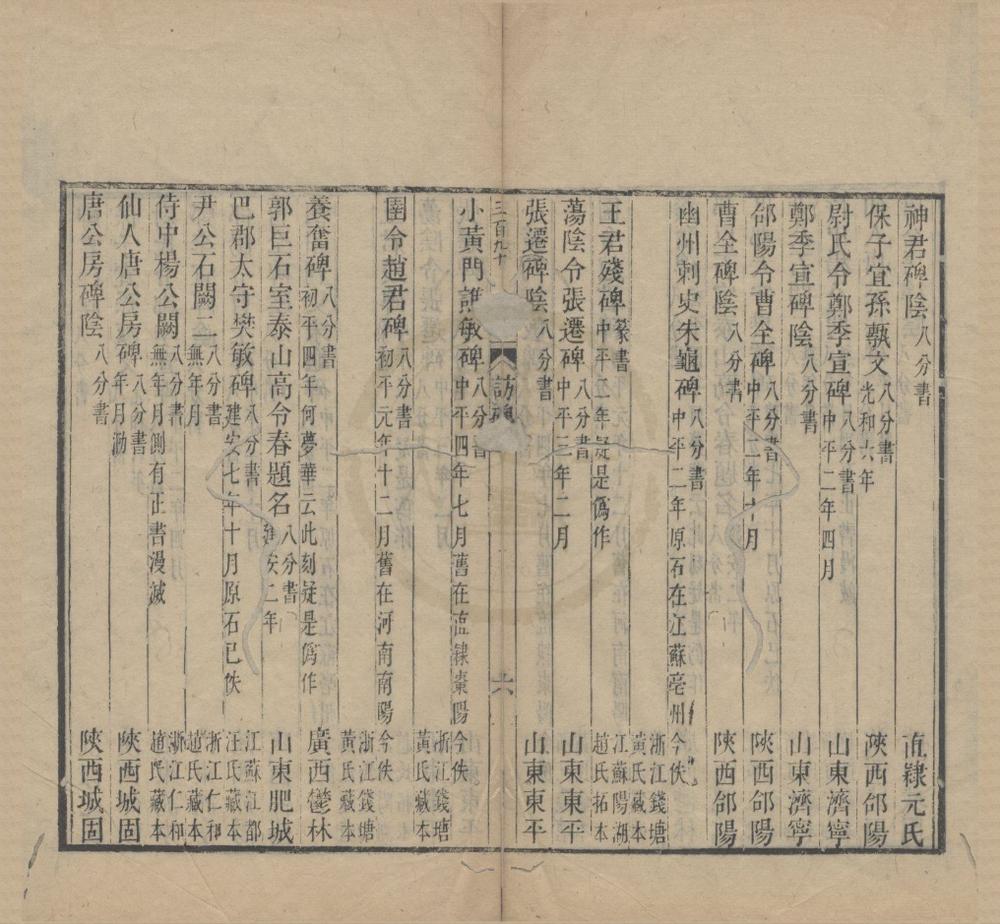 神君碑陰八分書 直隸元氏
保子宜孫甎文八分書光和六年 陝西郃陽
尉氏令鄭季宣碑八分書中平二年四月 山東濟寧
鄭季宣碑陰八分書 山東濟寧
郃陽令曹全碑八分書中平二年十月 陝西郃陽
曹全碑陰八分書 陝西郃陽
幽州刺史朱龜碑八分書中平二年原石在江蘇亳州今佚 浙江錢塘黃氏藏本
王君殘碑篆書中平二年疑是僞作 江蘇陽湖趙氏拓本
蕩陰令張遷碑八分書中平三年二月 山東東平
張遷碑陰八分書 山東東平
三百九十
訪碑
六
小黃門譙敏碑八分書中平四年七月舊在直隸棗陽今佚 浙江錢塘黃氏藏本
圉令趙君碑八分書初平元年十二月舊在河南南陽今佚 浙江錢塘黃氏藏本
養奮碑八分書初平四年何夢華云此刻疑是僞作 廣西鬱林
郭巨石室泰山高令春題名八分書建安二年 山東肥城
巴郡太守樊敏碑八分書建安七年十月原石已佚 江蘇江都汪氏藏本
尹公石闕二八分書無年月 浙江仁和趙氏藏本
侍中楊公闕八分書無年月側有正書漫滅 浙江仁和趙氏藏本
仙人唐公房碑八分書年月泐 陝西城固
唐公房碑陰八分書 陝西城固